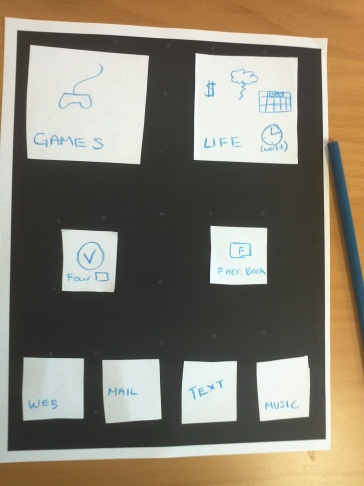 $
GAMES
LIFE
(world)
FOUR
F
FACEBOOK
WEB
MAIL
TEXT
MUSIC